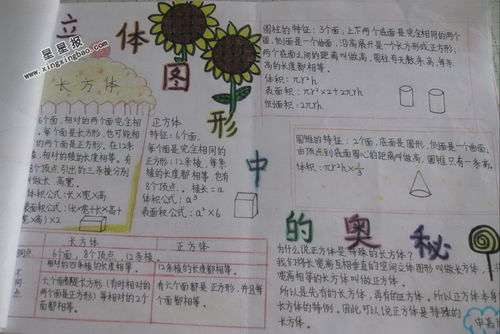 立体图形中的奥秘
星星报
www.xingxingbao.com
长方体
6个面,相对的两个面完全相
每个面是长方形,也可能相
的两个面是正方形。在12条
棱,相对的棱的长度相等。有
8个顶点,引出的三条棱分别
叫做长,高宽。
体积公式:长×宽×高
表面积公式:(长×宽+长×高+
宽×高)×2
正方体
特征:6个面,
每个面是完全相同的
正方形;12条棱,每条
棱的长度都相等,也有
8个顶点。棱长=a
体积公式:a³
表面积公式:a²×6
圆柱的特征:3个面,上下两个底面是完全相同的两个
圆,侧面是一个曲面,沿高展开是一个长方形或正方形;
两个底面之间的距离叫做高,圆柱有无数条高,每条
高的长度都相等。
体积:πr²h
表面积:πr²×2+2πrh
侧面积:2πrh
圆锥的特征:2个面,底面是圆形,侧面是一个曲面,
由顶点到底面圆心的距离叫做高,圆锥只有一条高。
体积:πr²h×1/3
长方体 正方体
同点 6个面,8个顶点,12条棱。
不同点
相对的四条棱的长度相等。 12条棱的长度都相等。
六个面都是长方形(有时相对的
两个面是正方形)每相对的2个
面都相等。
有六个面都是正方形,并且每
个面都相等。
为什么说正方体是特殊的长方体?
我们将长宽高互相垂直的空间立体图形叫做长方体,
宽高相等的长方体叫做正方体。
所以是先有的长方体,再有的正方体。所以正方体
长方体的特例。因此可以说正方体是特殊的
长方体。